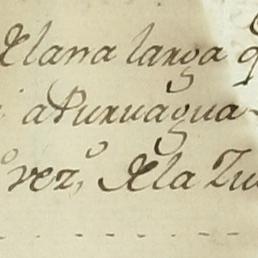 Xlana larga q
aPuruagua
vez, Xla Zu